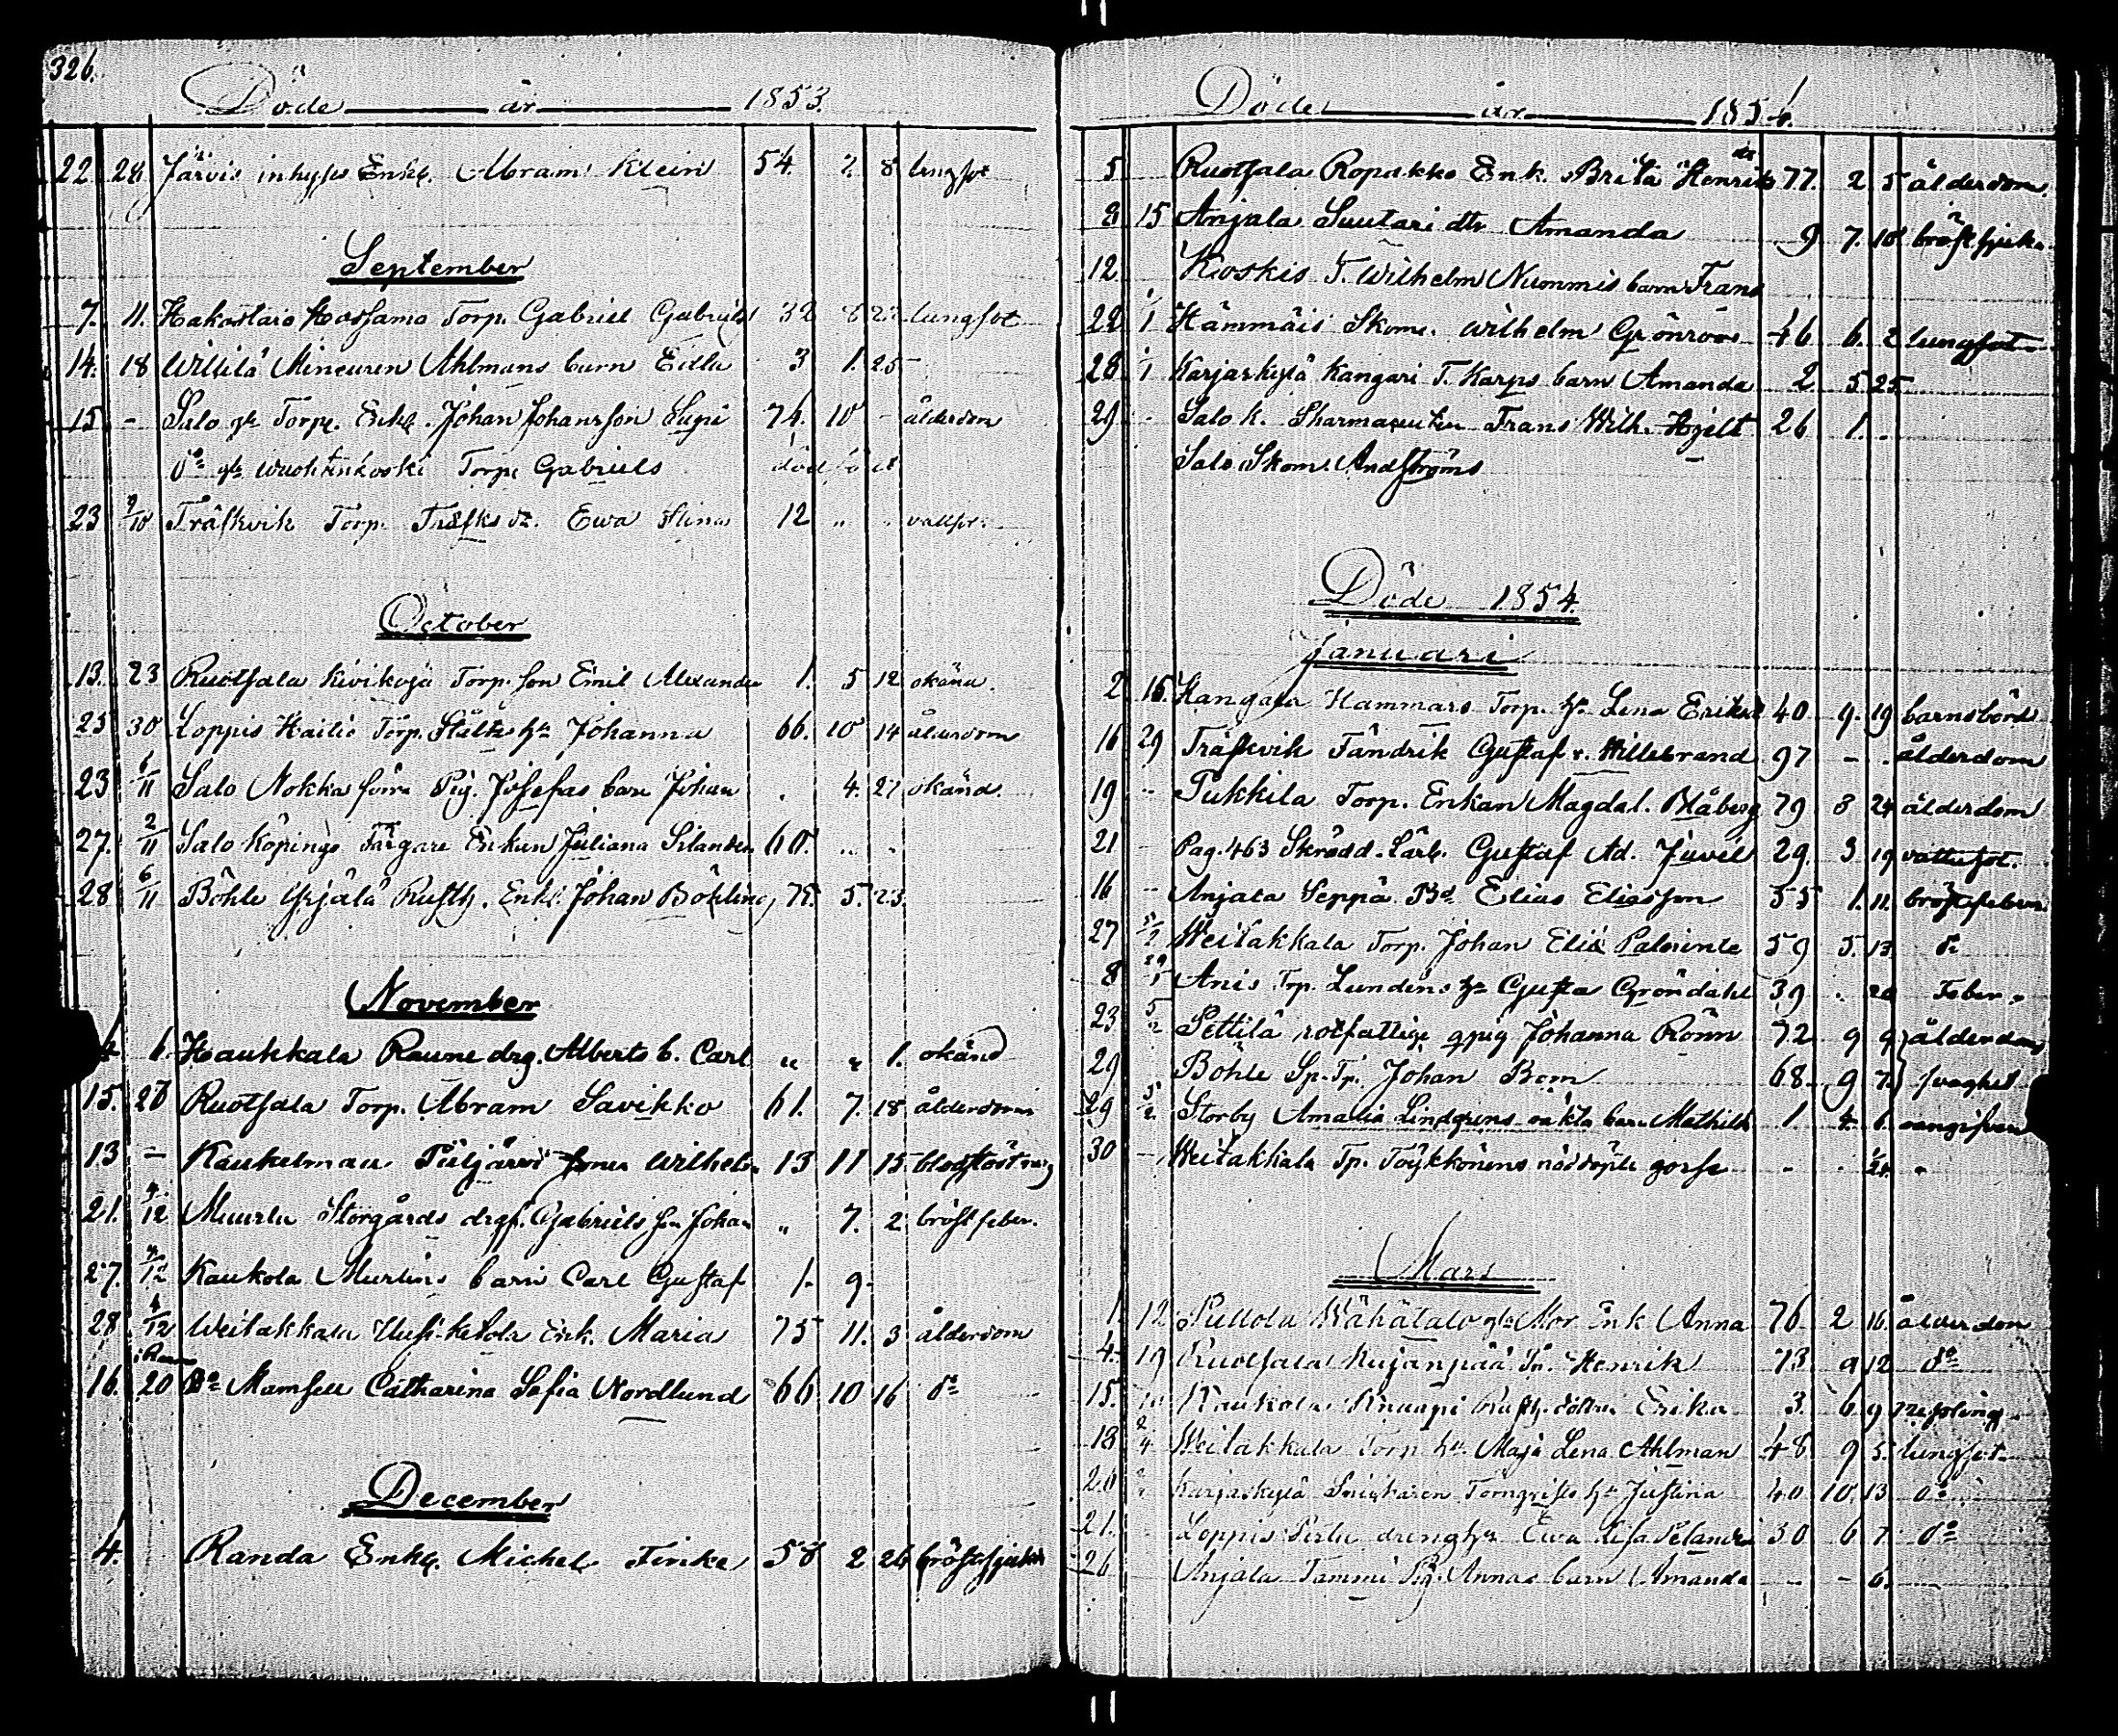 326.
Döde år 1853.
22. 28. Järvis inhyses Enkg. Abram Klein 54. 2. 8 lungsot
September
7. 11. Hakostaro Hossamo Torp. Gabriel Gabriels 32 8 22 lungsot
14. 18 Willilä Mineuren Ahlmans barn Edla 3 1. 25 -
15. - Salo gk Torp. Enkg. Johan Johansson Supi 74. 10 - ålderdom
do Torp. Gabriels död född
23 9/10 Träskvik Torp. Träsks dr. Ewa Stina 12 " " vattsot
October
13. 23 Ruotsala Kivikoja Torp. son Emil Alexander 1. 5 12 okänd.
25 30 Loppis Hailio Torp. Ståhls hu Johanna 66. 10 14 ålderdom
23 6/11 Salo Nokka Pig. Josefas barn Johan . 4. 27 okänd.
27. 2/11 Salo Köpings Färgare Enkan Juliana Silander 60. " "
28 6/11 Böhle Yrjälä Rusth. Enkl. Johan Böhling 75. 5. 23.
November
4 6. Haukkala Raune drg. Alberts b. Carl " " 1. okänd
15. 20 Ruotsala Torp. Abram Savikko 61. 7. 18 ålderdom
13 - Kaukelmaa Püljärvi sonen Wilhelm 13 11 15 blodstörtning
21. 4/12 Muurla Storgårds drgs. Gabriels son Johan " 7. 2 bröstfeber.
27. 4/12 Kaukola Murlins barn Carl Gustaf 1. 9.
28 4/12 Weitakkala Uusi-Ketola Enk. Maria 75 11. 3 ålderdom
16. 20 Do Mamsell Catharina Sofia Nordlund 66 10 16 do
December
4. Randa Enkg. Michel Finke 58 2 26 bröstsjukdom
Döde år 1854.
5 Ruotsala Ropakko Enk. Brita Henriks dr 77. 2 5 ålderdom.
8 15 Anjala Suutari dtr Amanda 9 7. 10 bröstsjukd.
12. Koskis T. Wilhelm Nummis barn Frans
22 1/1 Hämmäis Skom. Wilhelm Grönroos 46 6. 2 lungsot
28 1/1 Karjaskylä Kangari T. Karps barn Amanda 2 5 25
29 - Salo k. Pharmaceuten Frans Wilh. Hjelt 26 1. .
Salo Skom. Andströms
Döde 1854.
Januari
2 15. Kangala Hammars Torp. hu Lena Eriksd 40 9. 19 barnsbörd
16 29 Träskvik Fändrik Gustaf v. Willebrand 97 - . ålderdom
19 " Pukkila Torp. Enkan Magdal. Blåberg 79 8 24 ålderdom
21 - Pag. 463 Skrädd. Lärl. Gustaf Ad. Juvel 29. 3 19 vattusot.
16 - Anjala Seppä Bd. Elias Eliasson 55 1. 11. bröstfeber
27 5/2 Weitakkala Torp. Johan Elis Palminle 59 5. 13 do
8 29/1 Anis Torp. Lundens hu Gusta Gröndahl 39 . 20 Feber
23 5/2 Pettilä rotfattige gpig Johanna Rönn 72 9 9 ålderdoms
29 Böhle Sp.Tp. Johan Bom 68. 9 7. svaghet
29 5/2 Storby Amalia Lindgrens oäkta barn Mathilda 1. 4. 6.
30 - Weitakkala Tp. Töykkönens nöddöpte gosse - . 1/24.
Mars
1. 12 Pullola Wähätalo gla Mor. Enk Anna 76 2 16. ålderdom
4. 19 Ruotsala Kujanpää Henrik 73. 9 12 do
15. Kaukola Knaapi Rusth. dottren Erika 3. 6. 9
18 2/4 Weitakkala Torp. hu Maja Lena Ahlman 48 9 5. lungsot
20 Karjaskylä Snickaren Törnqvists hu Justina 40 10. 13 do
21. Loppis Perlu drenghu Ewa Lisa Selander 30 6 7. do
26 Anjala Tammi Pig. Annas barn Amanda - - 6.